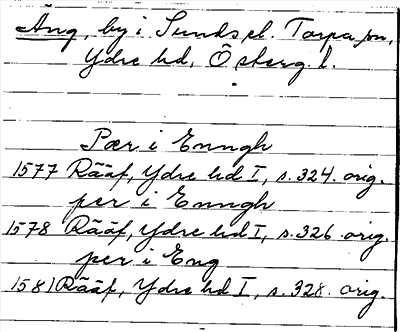 Äng, by i Sunds el. Torpa sn,
Ydre hd, Österg. l.
Pær i Enngh
1577 Rääf, Ydre hd I, s. 324. orig.
per i Enngh
1578 Rääf, Ydre hd I, s. 326. orig.
per i Eng
1581 Rääf, Ydre hd I, s. 328. orig.